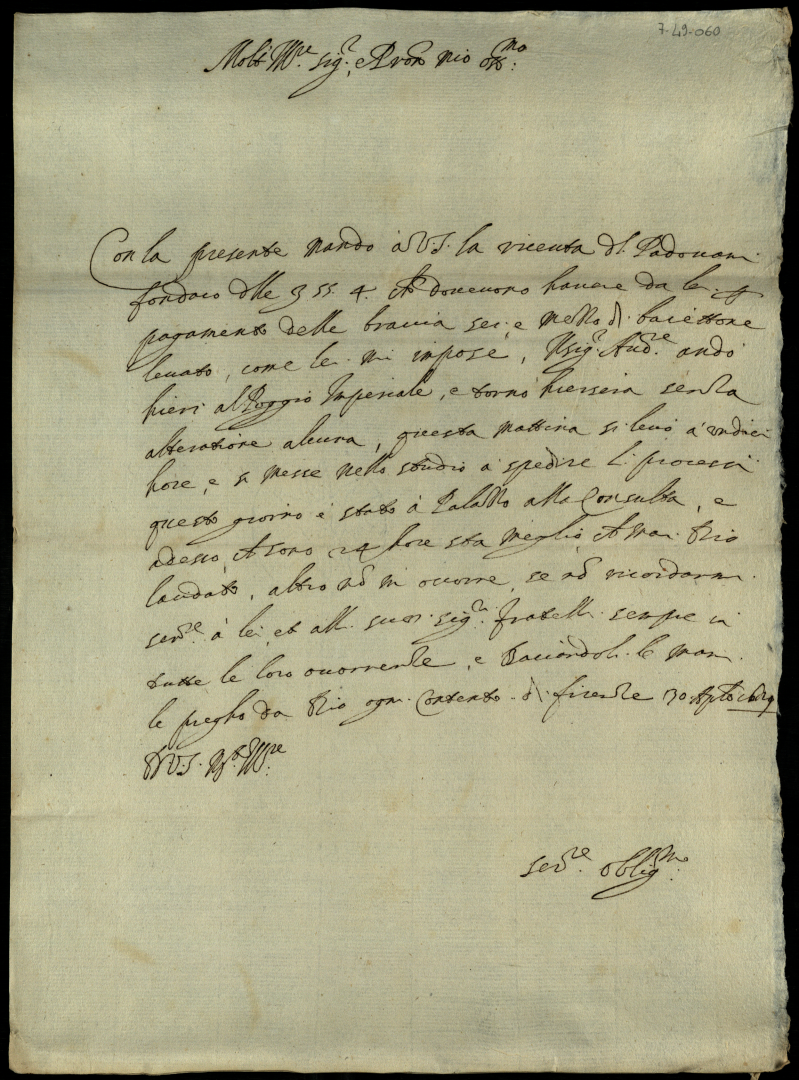 7-49-060
Molt' Ill.re sig.r e Pron mio oss.mo
Con la presente mando à V.S. la riceuta d. Padouani
fondaco delle 55. 4. ch doueuono hauere da lei p
pagamento delle braccia sei, e mezzo di baiettone
leuato, come lei mi impose, Il sig.r Aud.re andò
hieri al Poggio Imperiale, e tornò hiersera senza
alteratione alcuna, questa mattina si leuò à undici
hore, e si messe nello studio à spedire li processi
questo giorno è stato à Palazzo alla Consulta, e
adesso, ch sono 24 hore sta meglio, ch mai Dio
laudato, altro nō mi occorre, se nō ricordarmi
ser.re à lei, et alli suoi sig.ri fratelli sempre in
tutte le loro occorrenze, e baciandoli le mani
le pregho da Dio ogni contento. di firenze 30
D V.S. M.to Ill.re
ser.re oblig.mo